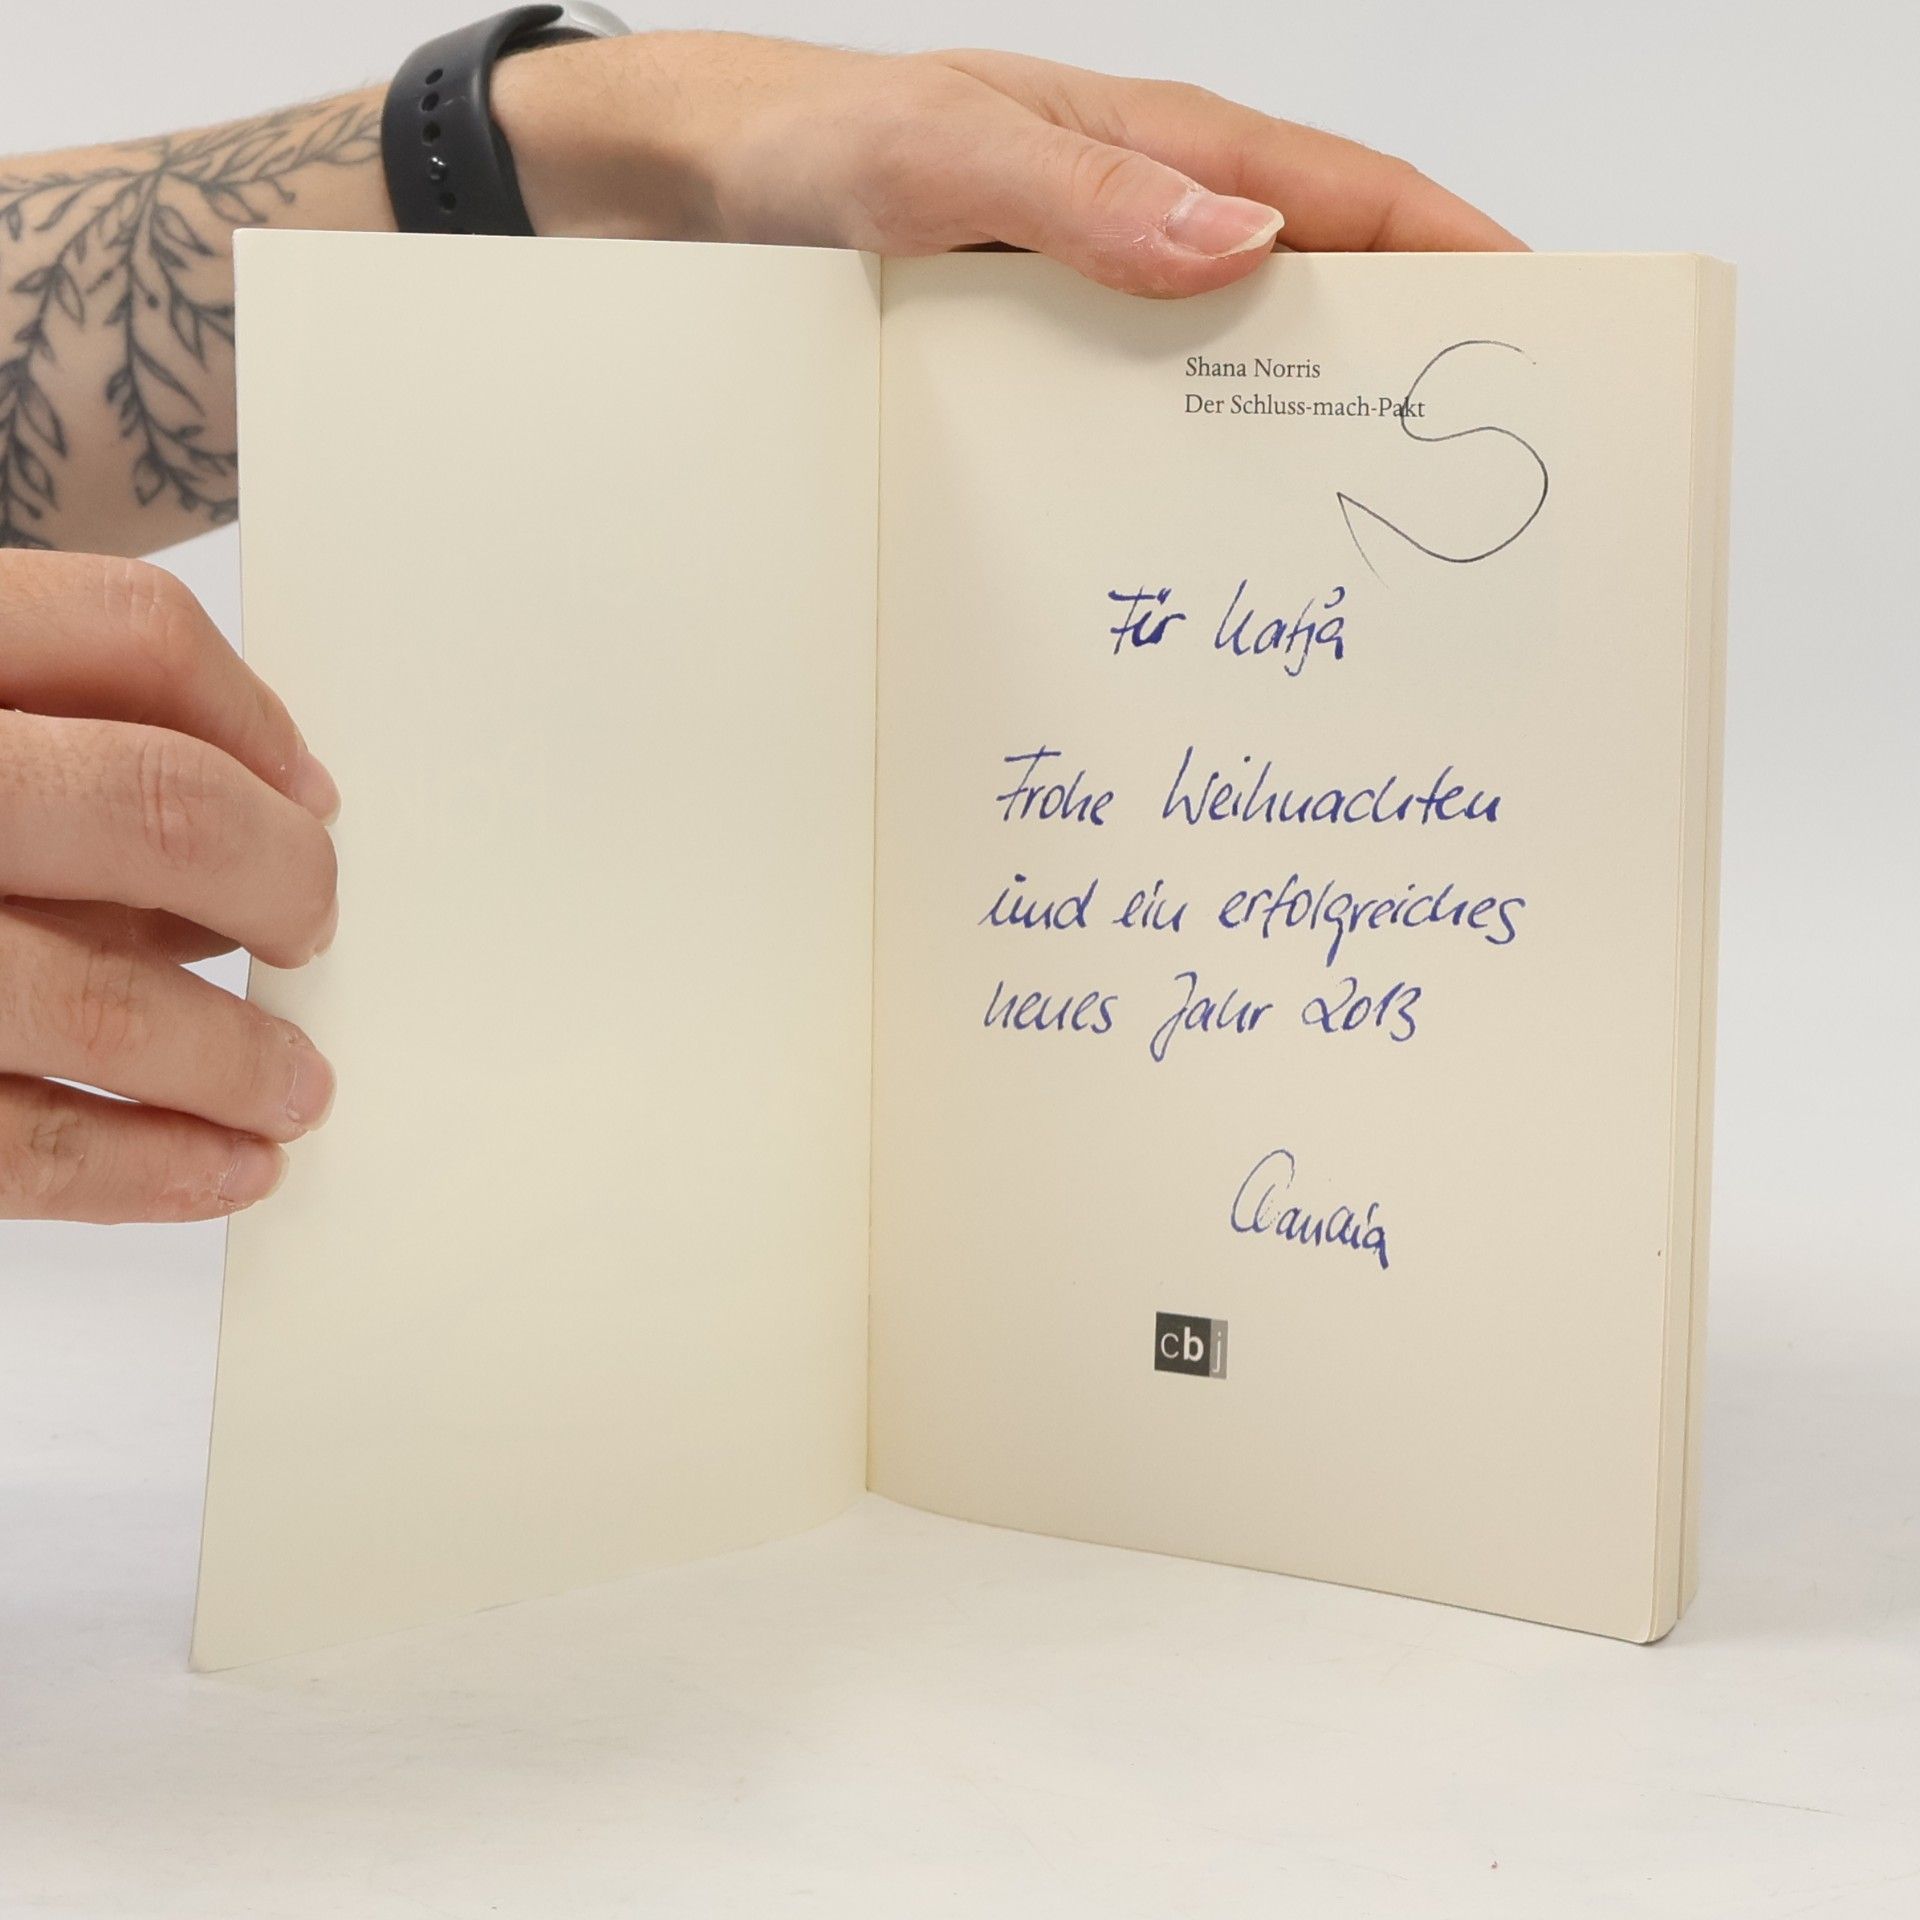 Shana Norris
Der Schluss-mach-Pakt
S
Für Katja
Frohe Weihnachten
und ein erfolgreiches
neues Jahr 2013
cbj